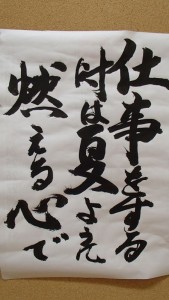 仕事をする
時は夏よえ
燃える心で